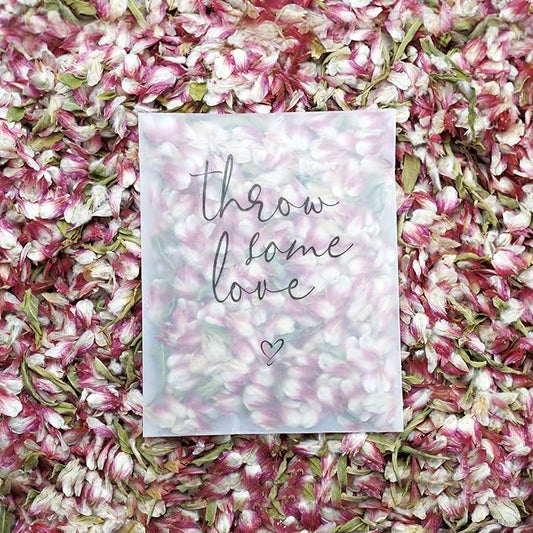 throw
some
love